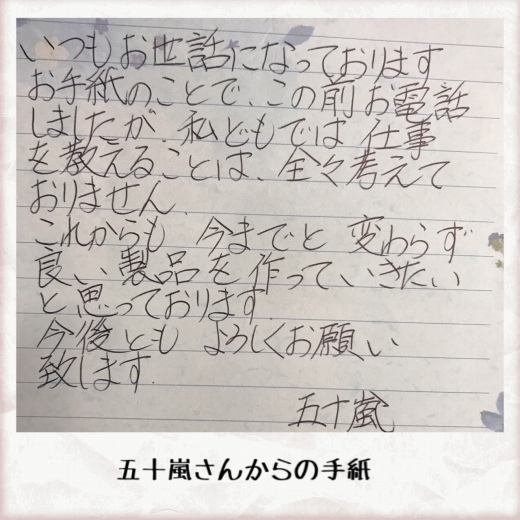 いつもお世話になっております
お手紙のことで、この前お電話
しましたが、私どもでは仕事
を教えることは、全々考えて
おりません.
これからも 今までと 変わらず
良い製品を作っていきたい
と思っております.
今後とも よろしくお願い
致します.
五十嵐
五十嵐さんからの手紙